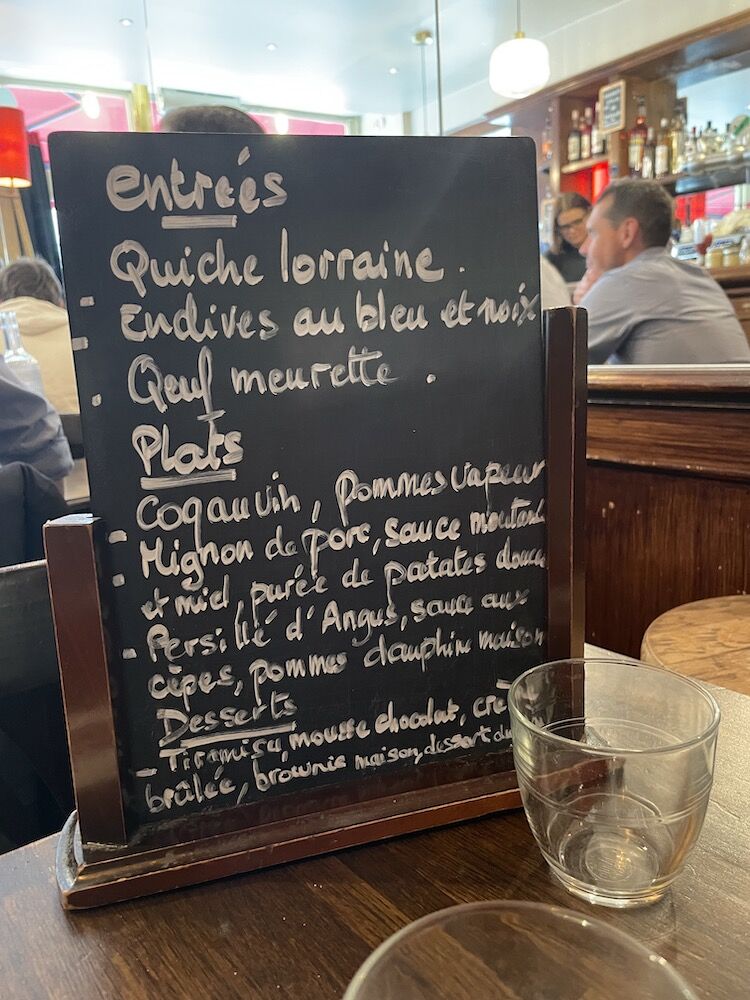 Entreés
Quiche lorraine.
- Endives au bleu et noix
- Oeuf meurette.
Plats
- Coq au vin, pommes vapeur
- Mignon de porc, sauce moutarde
et miel, purée de patates douces
- Persillé d'Angus, sauce aux
cèpes, pommes dauphin maison
Desserts
- Tiramisu, mousse chocolat, crème
brûlée, brownie maison, dessert du